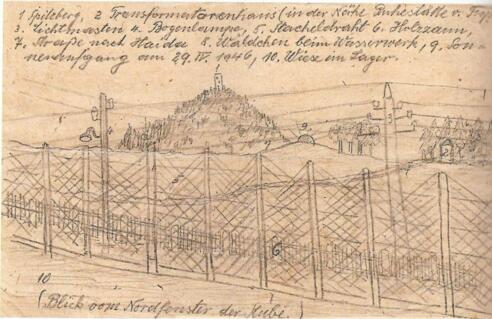 1 Spitzberg, 2 Transformatorenhaus (in der Nähe Ruhestätte v.
3. Lichtmasten 4. Bogenlampe, 5. Stacheldraht 6. Holzzaun,
7. Straße nach Haida 8. Wäldchen beim Wasserwerk, 9. Son-
nenaufgang am 29. IV. 1946, 10. Wiese im Lager.
1
9
3
2
6
10
(Blick vom Nordfenster der Stube.)